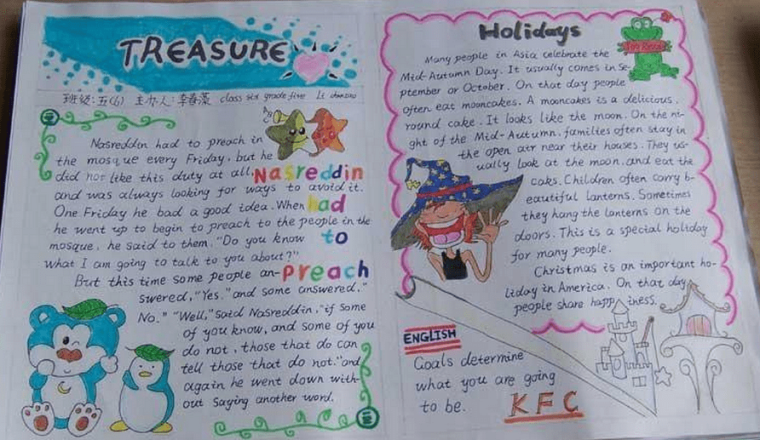 TREASURE
班级:五(6) 主办人:李春藻 class six grade five Li
Nasreddin had to preach in
the mosque every Friday, but he
did not like this duty at all. Nasreddin
and was always looking for ways to avoid it.
One Friday he bad a good idea. When had
he went up to begin to preach to the people in the
mosque, he said to them, "Do you know to
what I am going to talk to you about?"
But this time some people an- preach
swered, "Yes." and some answered."
No." "Well," said Nasreddin, "if some
of you know, and some of you
do not, those that do can
tell those that do not." and
again he went down with-
out saying another word.
Holidays
Many people in Asia celebrate the
Mid-Autumn Day. It usually comes in Se-
ptember or October. On that day people
often eat mooncakes. A mooncakes is a delicious,
round cake. It looks like the moon. On the ni-
ght of the Mid-Autumn, families often stay in
the open air near their houses. They us-
ually look at the moon, and eat the
caks. Children often carry b-
eautiful lanterns. Sometimes
they hang the lanterns on the
doors. This is a special holiday
for many people.
Christmas is an important ho-
liday in America. On that day
people share happiness.
ENGLISH
Goals determine
what you are going
to be.
KFC